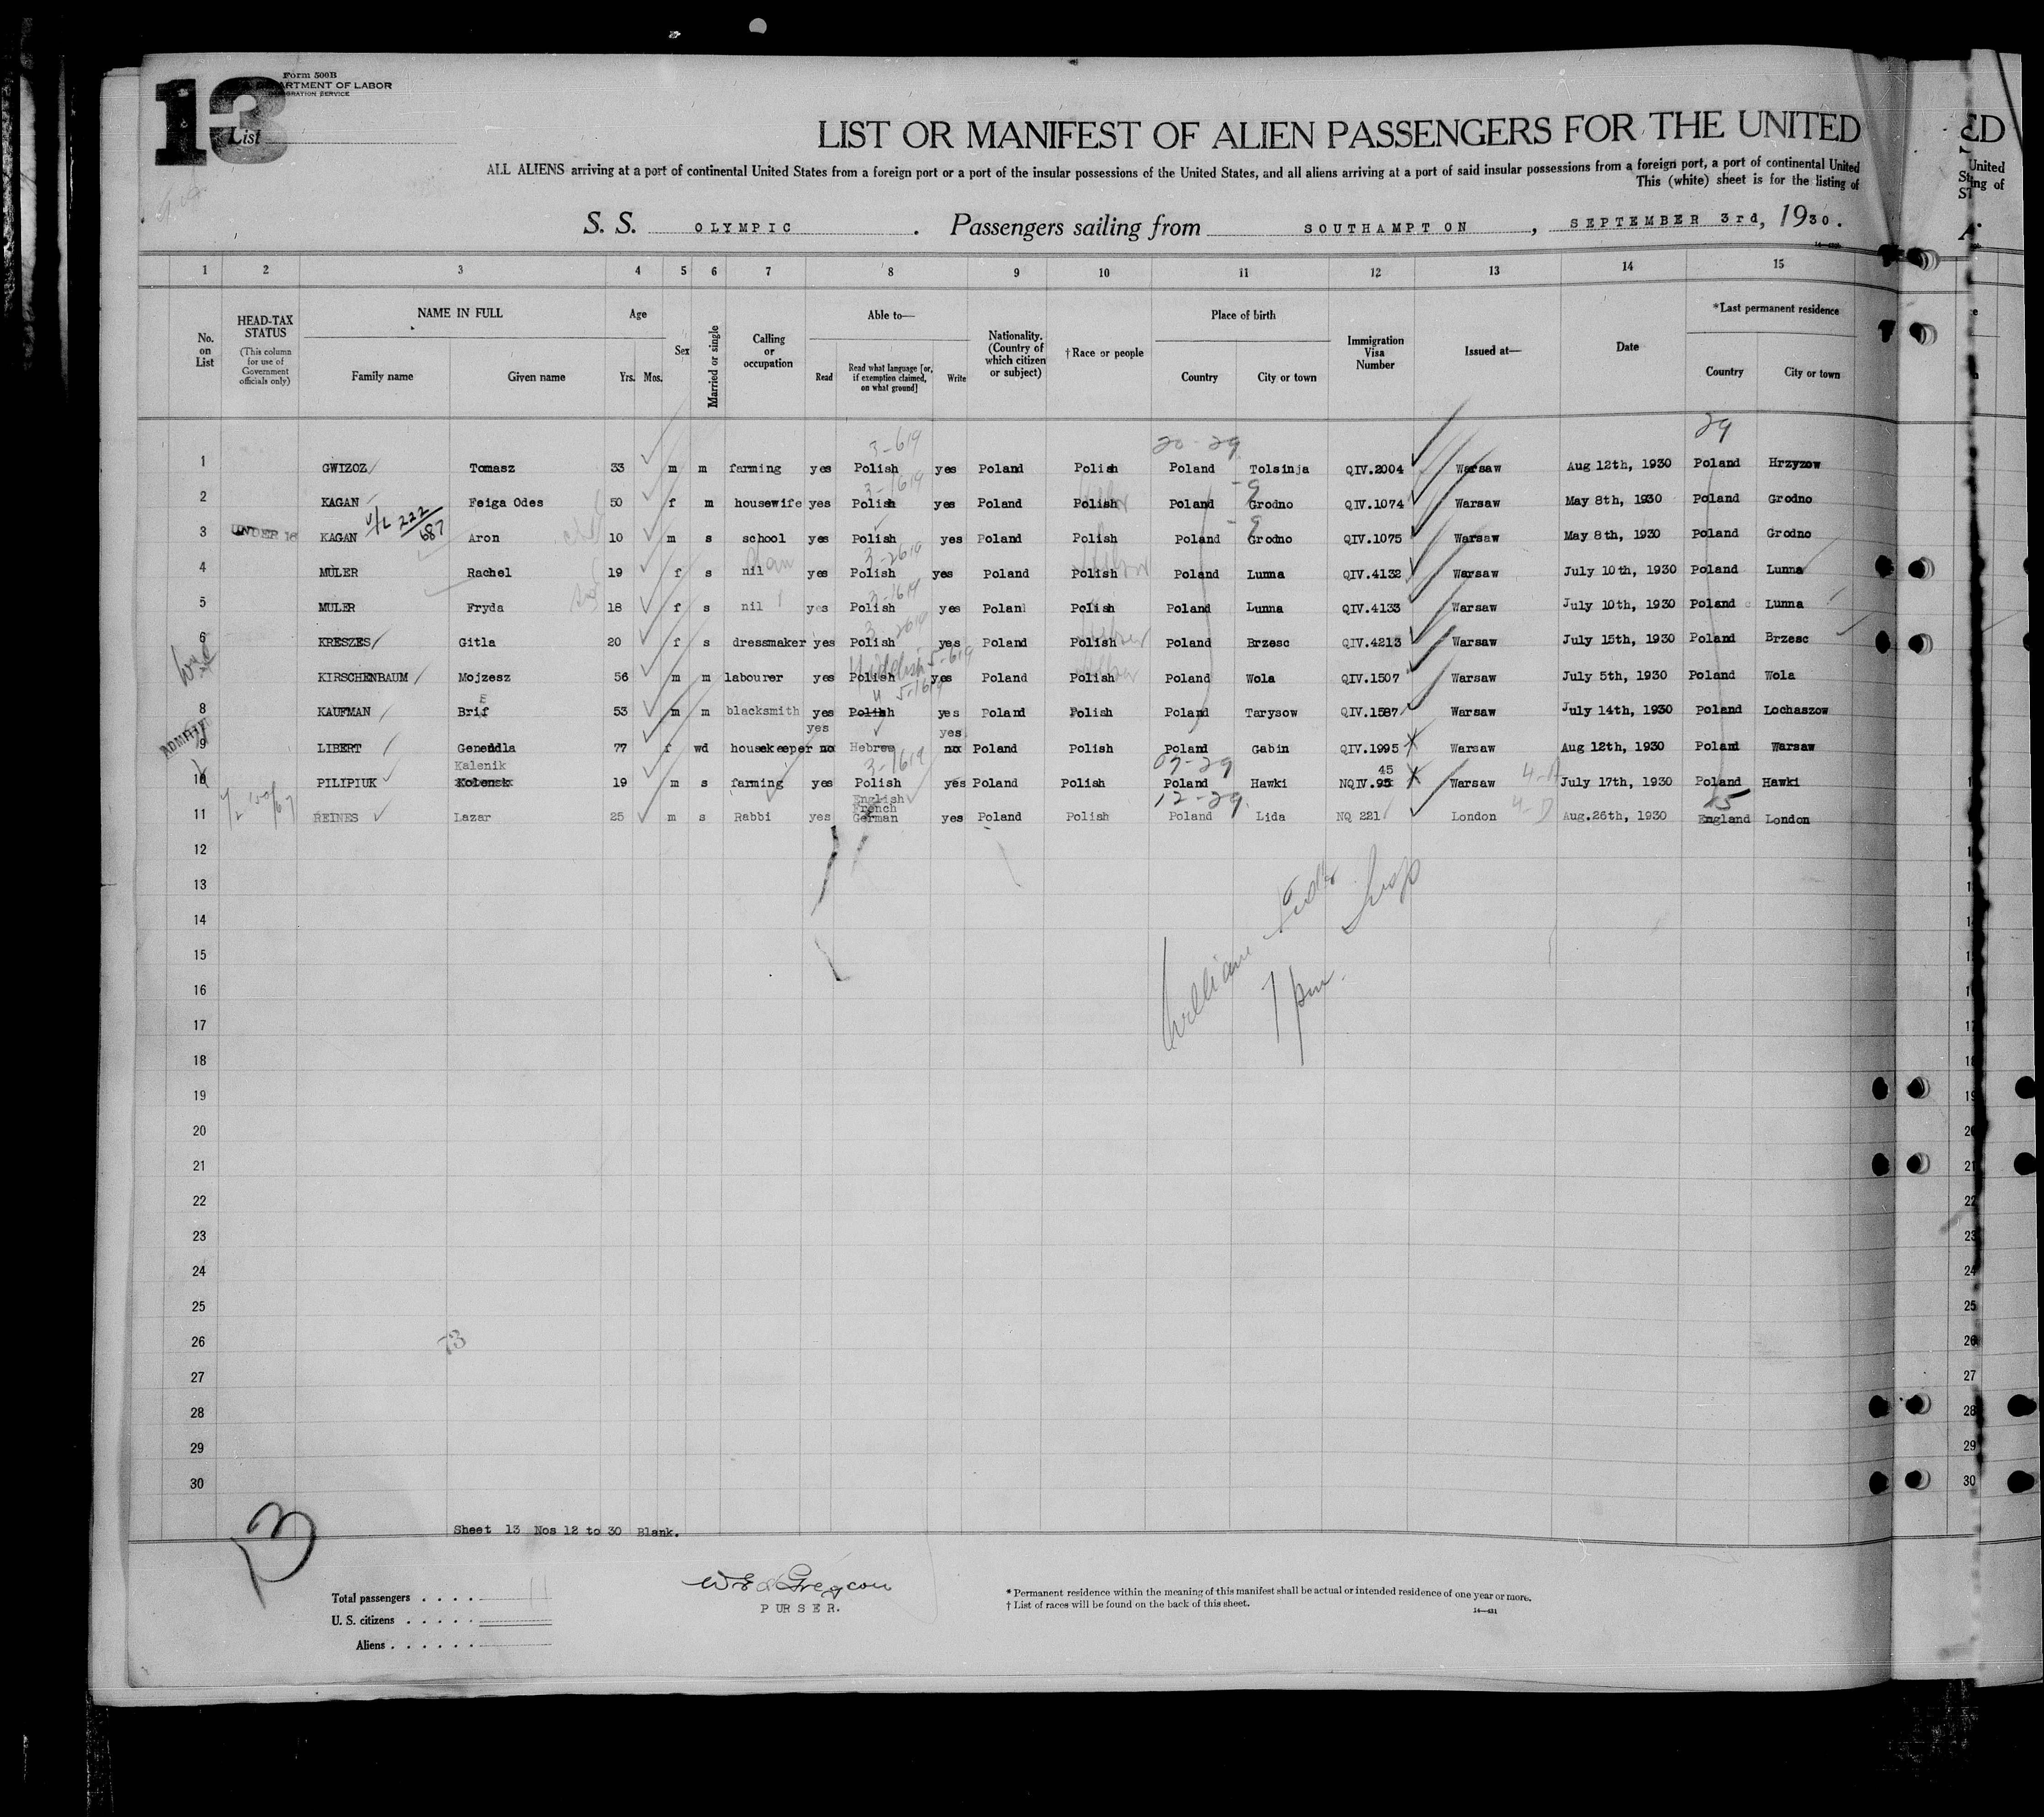 13
Form 500B
DEPARTMENT OF LABOR
IMMIGRATION SERVICE
List
LIST OR MANIFEST OF ALIEN PASSENGERS FOR THE UNITED
ALL ALIENS arriving at a port of continental United States from a foreign port or a port of the insular possessions of the United States, and all aliens arriving at a port of said insular possessions from a foreign port, a port of continental United
This (white) sheet is for the listing of
S. S. OLYMPIC . Passengers sailing from SOUTHAMPTON , SEPTEMBER 3rd, 1930.
1 2 3 4 5 6 7 8 9 10 11 12 13 14 15
No. on List
HEAD-TAX STATUS
(This column for use of Government officials only)
NAME IN FULL
Family name Given name
Age
Yrs. Mos.
Sex
Married or single
Calling or occupation
Able to—
Read
Read what language [or, if exemption claimed, on what ground]
Write
Nationality. (Country of which citizen or subject)
†Race or people
Place of birth
Country City or town
Immigration Visa Number
Issued at—
Date
*Last permanent residence
Country City or town
3-619 20-29 29
1 GWIZOZ Tomasz 33 m m farming yes Polish yes Poland Polish Poland Tolsinja QIV.2004 Warsaw Aug 12th, 1930 Poland Hrzyzow
3-1619 -9
2 KAGAN Feiga Odes 50 f m housewife yes Polish yes Poland Polish Poland Grodno QIV.1074 Warsaw May 8th, 1930 Poland Grodno
V/L 222/687 -9
3 UNDER 16 KAGAN Aron 10 m s school yes Polish yes Poland Polish Poland Grodno QIV.1075 Warsaw May 8th, 1930 Poland Grodno
3-2619
4 MULER Rachel 19 f s nil yes Polish yes Poland Polish Poland Lunna QIV.4132 Warsaw July 10th, 1930 Poland Lunna
3-1619
5 MULER Fryda 18 f s nil yes Polish yes Poland Polish Poland Lunna QIV.4133 Warsaw July 10th, 1930 Poland Lunna
3-2619
6 KRESZES Gitla 20 f s dressmaker yes Polish yes Poland Polish Poland Brzesc QIV.4213 Warsaw July 15th, 1930 Poland Brzesc
5-619
KIRSCHENBAUM Mojzesz 56 m m labourer yes Polish yes Poland Polish Poland Wola QIV.1507 Warsaw July 5th, 1930 Poland Wola
E 5-1619
8 KAUFMAN Brif 53 m m blacksmith yes Polish yes Poland Polish Poland Tarysow QIV.1587 Warsaw July 14th, 1930 Poland Lochaszow
yes yes
ADMITTED
9 LIBERT Genendla 77 f wd housekeeper no Hebrew no Poland Polish Poland Gabin QIV.1995 Warsaw Aug 12th, 1930 Poland Warsaw
Kalenik 3-1619 07-29 45
10 PILIPIUK Kolensk 19 m s farming yes Polish yes Poland Polish Poland Hawki NQIV.95 Warsaw July 17th, 1930 Poland Hawki
English
French 12-29 4-D 15
11 REINES Lazar 25 m s Rabbi yes German yes Poland Polish Poland Lida NQ 221 London Aug.26th, 1930 England London
12
13
14
15
16
17
18
19
20
21
22
23
24
25
26
27
28
29
30
William
7 pm.
73
Sheet 13 Nos 12 to 30 Blank.
13
Total passengers . . . . 11
U. S. citizens . . . . .
Aliens . . . . . .
PURSER.
* Permanent residence within the meaning of this manifest shall be actual or intended residence of one year or more.
† List of races will be found on the back of this sheet.
14—431